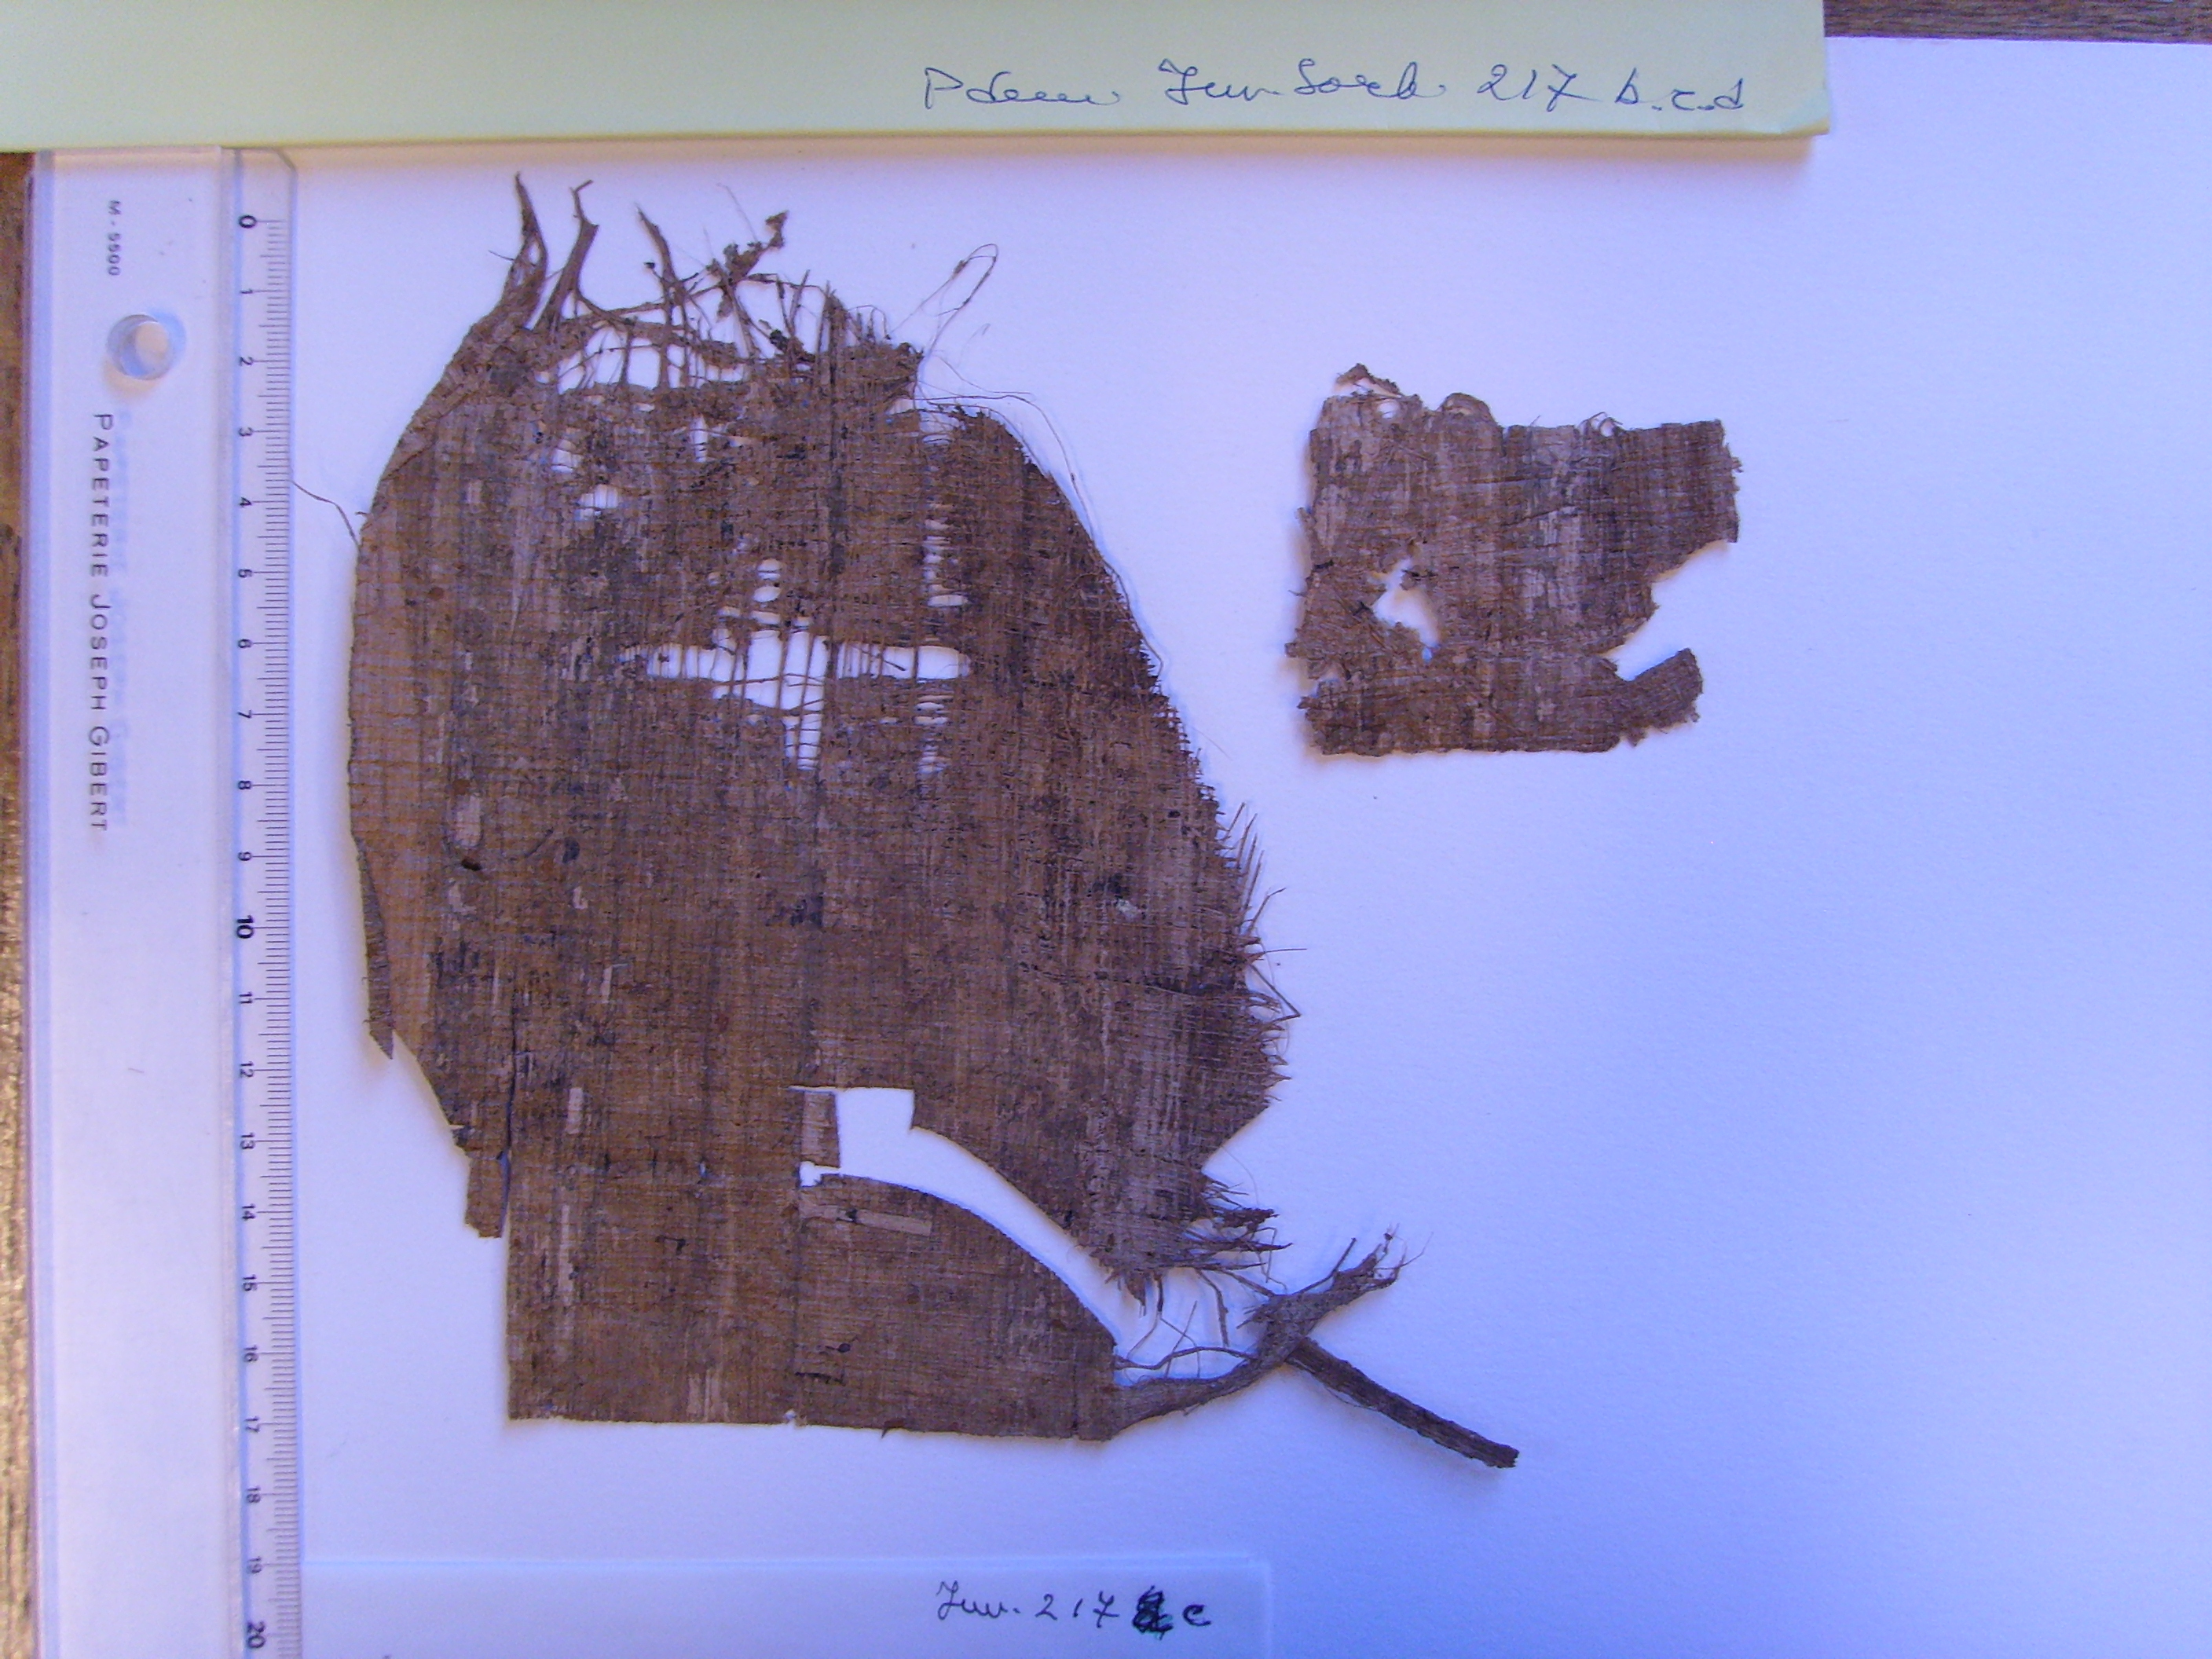 Pdem Inv. Sorb. 217 b.c.d
M-5500
PAPETERIE JOSEPH GIBERT
0 1 2 3 4 5 6 7 8 9 10 11 12 13 14 15 16 17 18 19 20
Inv. 217 c